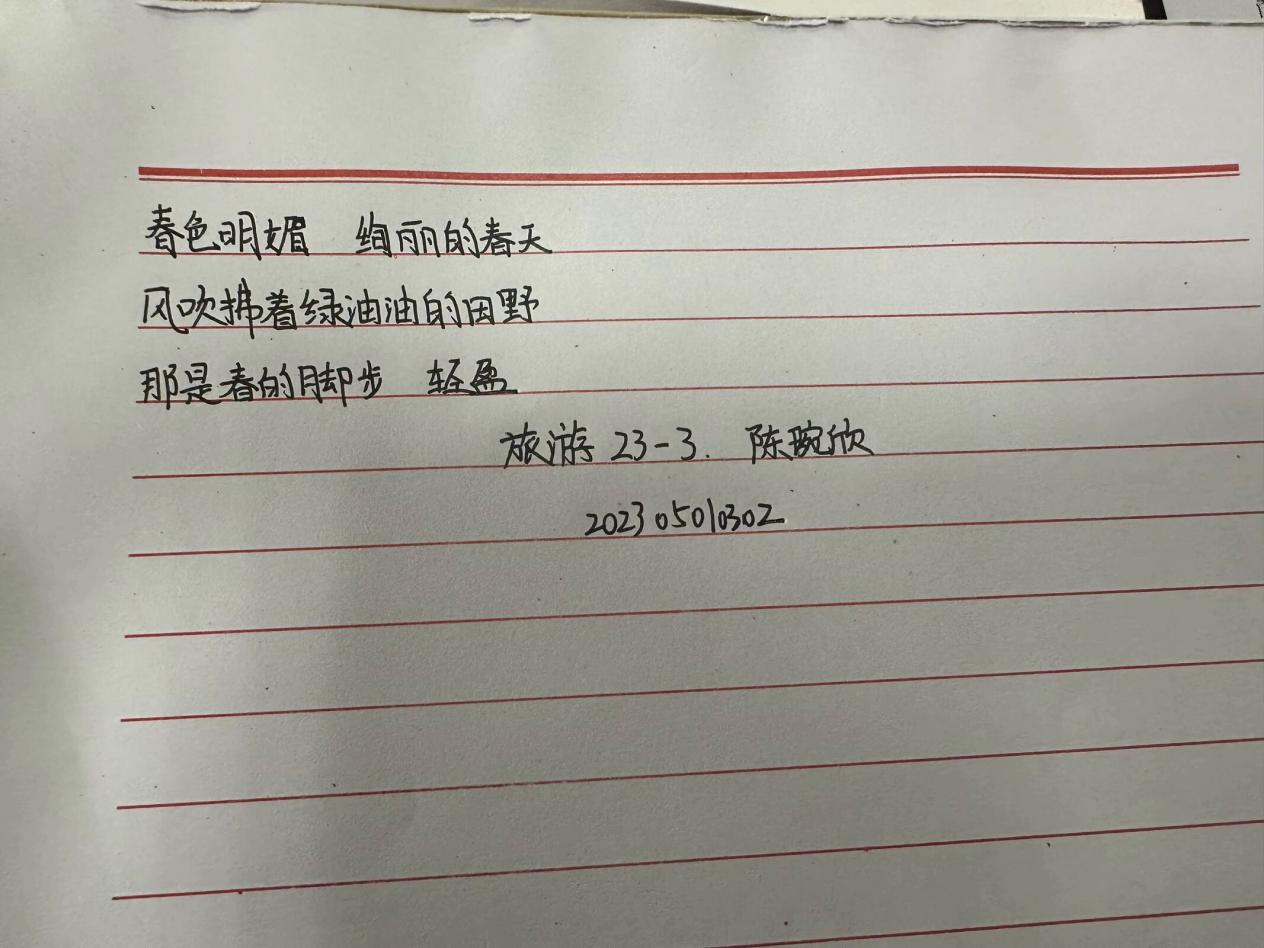 春色明媚 绚丽的春天
风吹拂着绿油油的田野
那是春的脚步 轻盈
旅游23-3. 陈琬欣
202305010302